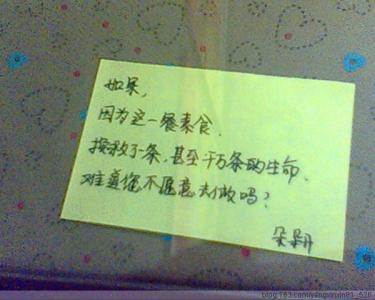 如果,
因为这一餐素食.
挽救了一条,甚至千万条的生命、
难道您不愿意去做吗?
blog.163.com